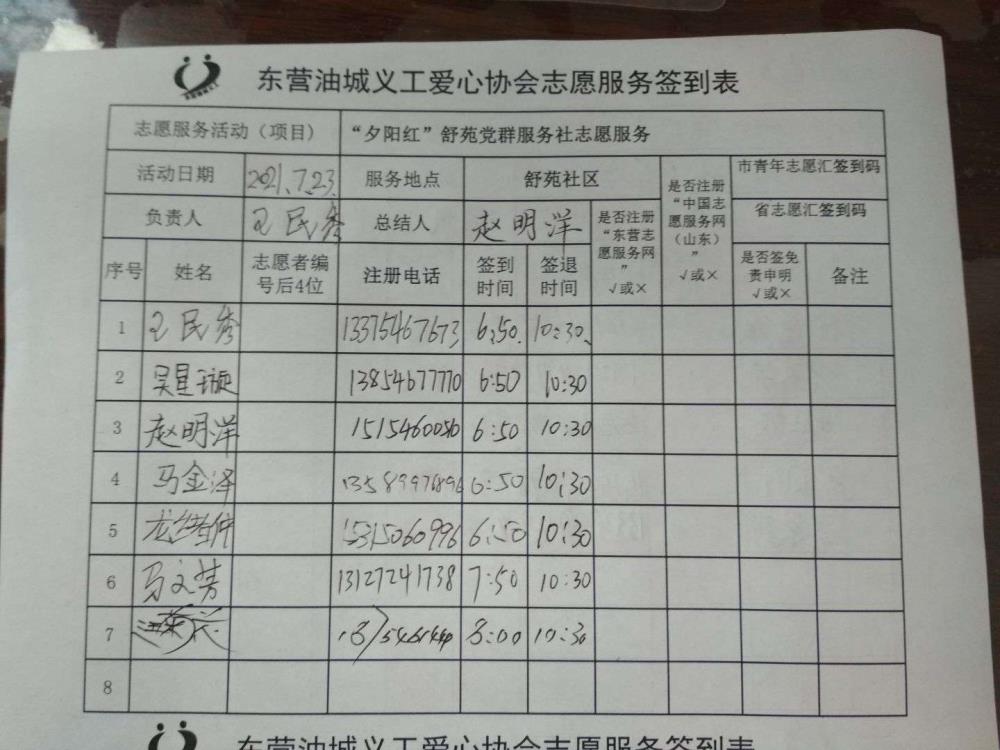 东营油城义工爱心协会志愿服务签到表
志愿服务活动（项目） “夕阳红”舒苑党群服务社志愿服务
活动日期 2021.7.23. 服务地点 舒苑社区 是否注册“中国志愿服务网（山东）” √或× 市青年志愿汇签到码
负责人 王民秀 总结人 赵明洋 是否注册“东营志愿服务网” √或× 省志愿汇签到码
序号 姓名 志愿者编号后4位 注册电话 签到时间 签退时间 是否签免责申明 √或× 备注
1 王民秀 13375467673 6:50. 10:30.
2 吴星璇 13854677770 6:50 10:30
3 赵明洋 15154600560 6:50 10:30
4 马金泽 13589976896 6:50 10:30
5 15315060996 6:50 10:30
6 马文芳 13127241738 7:50 10:30
7 8:00 10:30
8
东营油城义工爱心协会志愿服务签到表